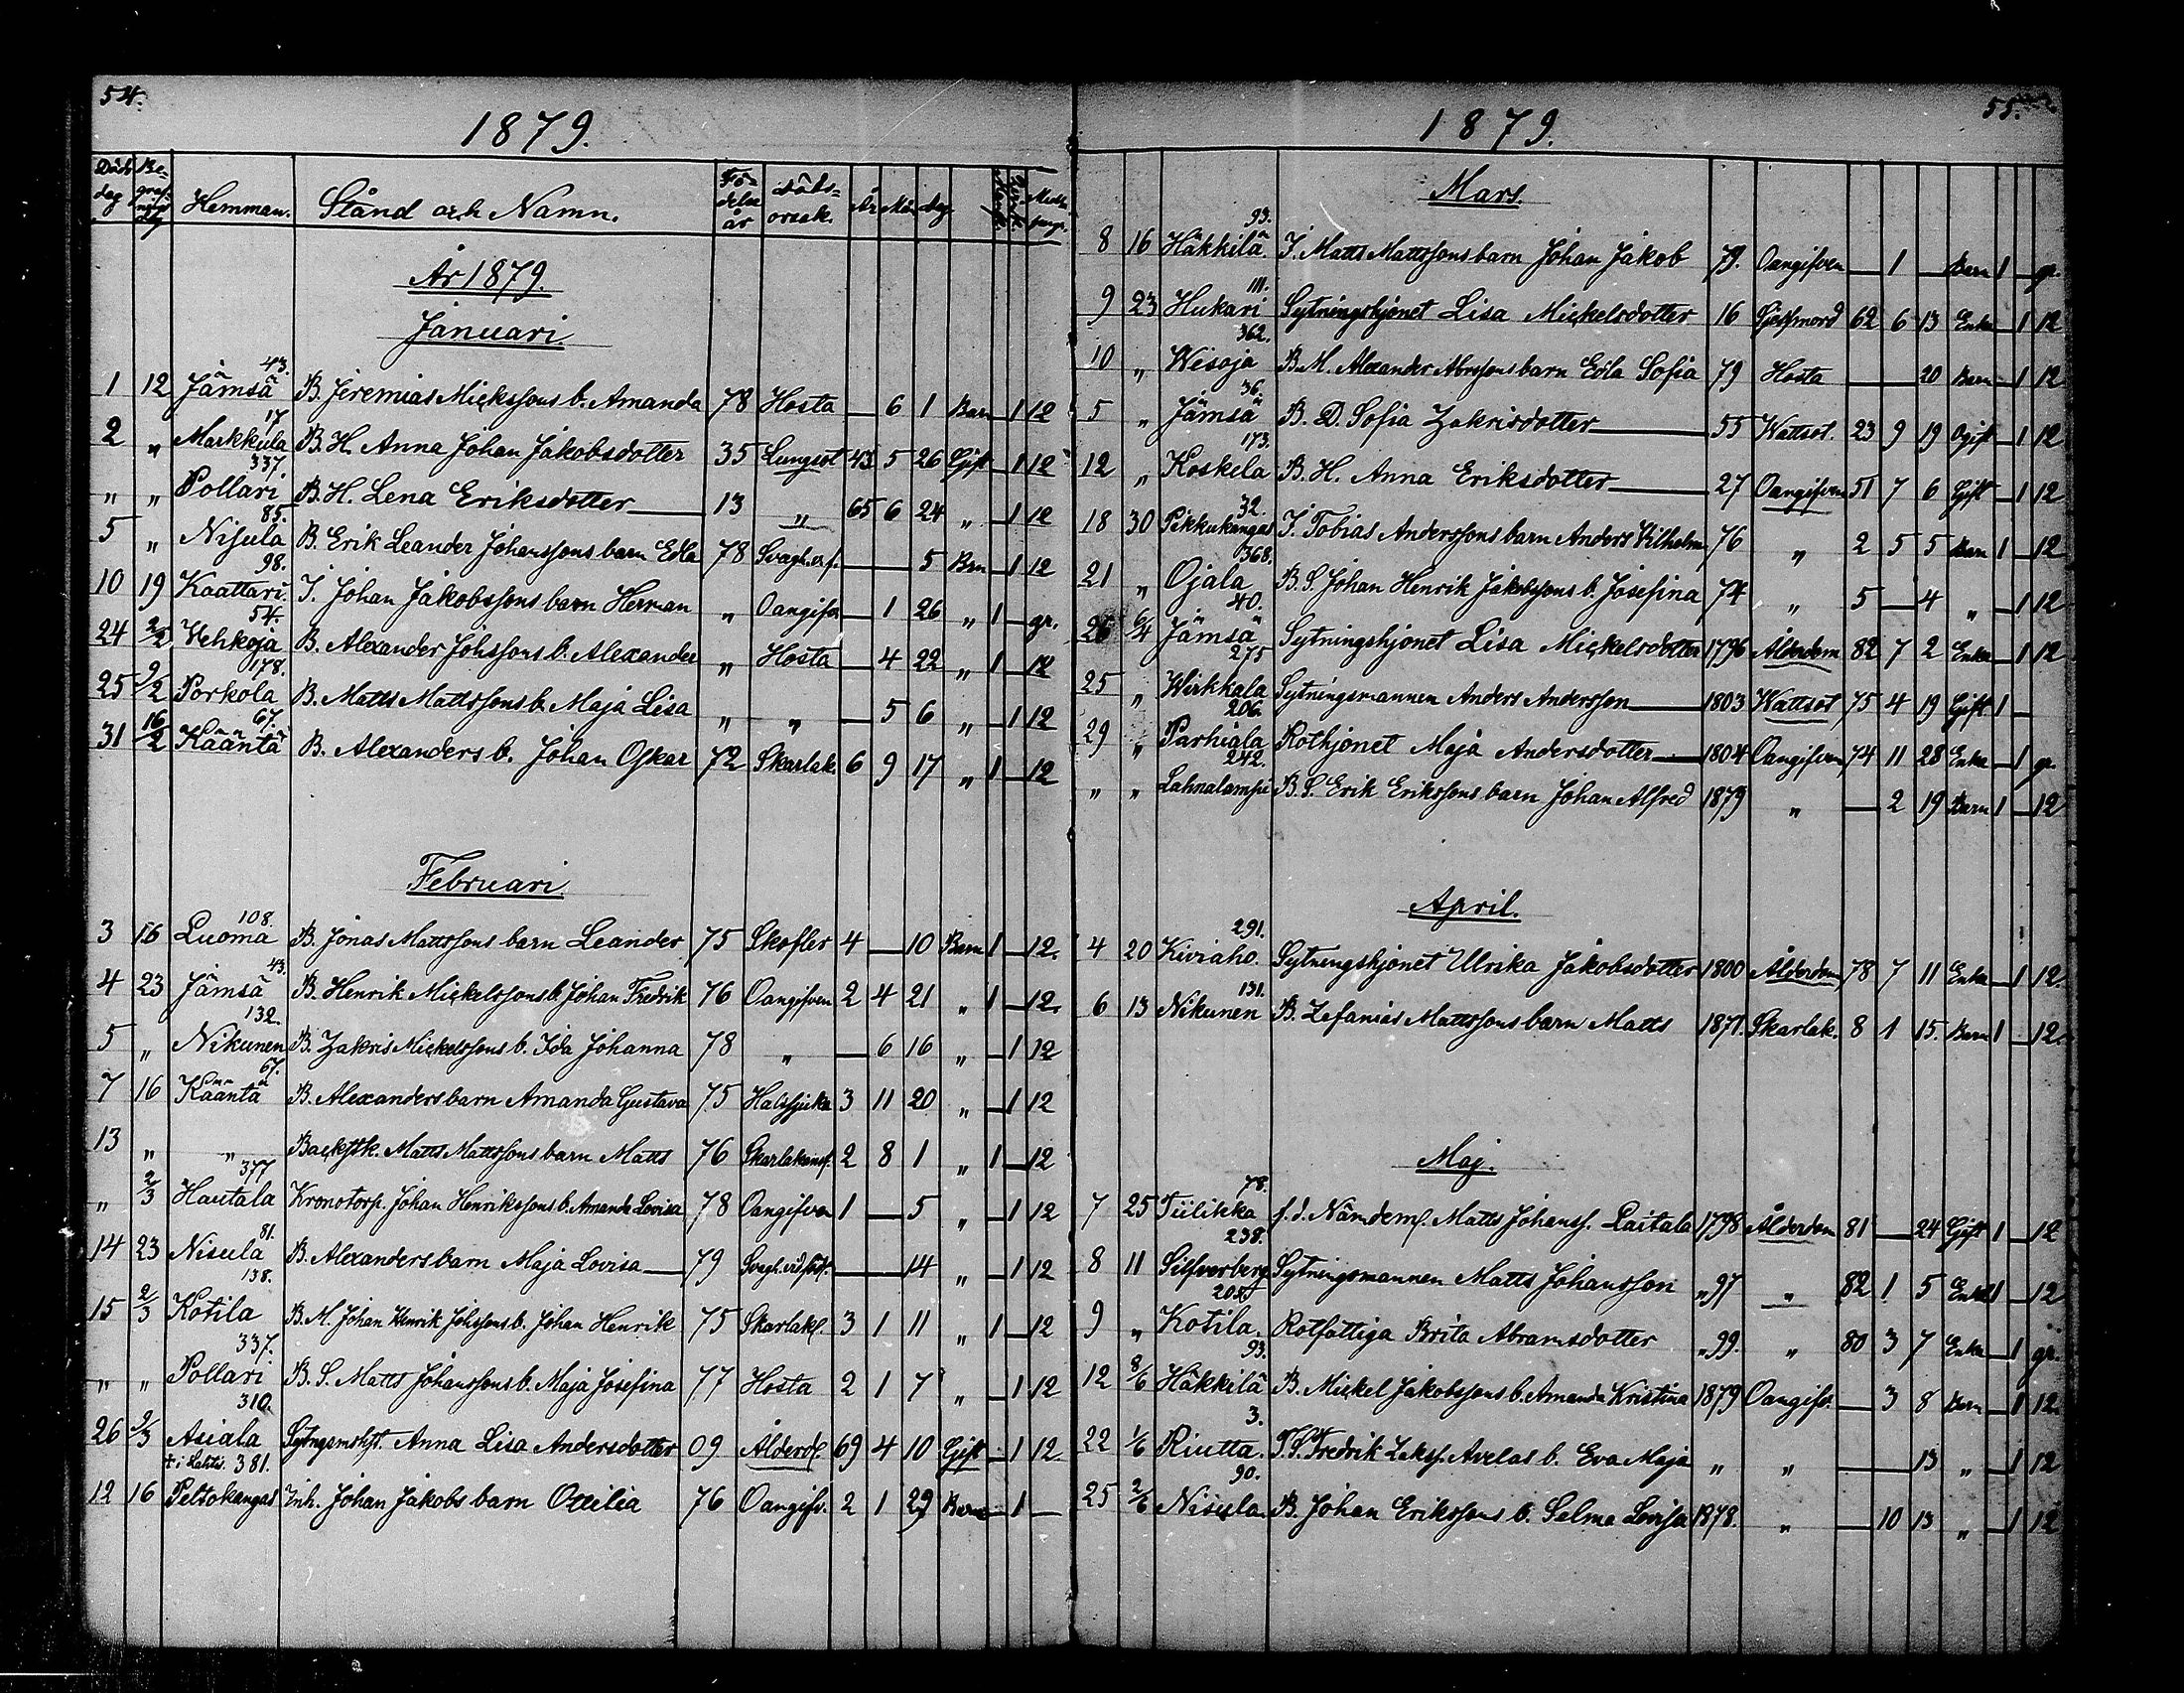 54.
1879.
Döds dag Be- graf- nings dag Hemman. Stånd och Namn. Fö- delse år Döds- orsak. År Mån. Dag
År 1879.
Januari
43.
1 12 Jämsä B. Jeremias Mickssons b. Amanda 78 Hosta — 6 1 Barn — 1 12
17
2 " Markkula B. H. Anna Johan Jakobsdotter 35 Lungsot 43 5 26 Gift — 1 12
337.
" " Pollari B. H. Lena Eriksdotter — 13 " 65 6 24 " — 1 12
85.
5 " Nisula B. Erik Leander Johanssons barn Edla 78 — 5 Brn — 1 12
98.
10 19 Kaattari. I. Johan Jakobssons barn Herman " Oangifv — 1 26 " 1 — gr.
54.
24 2/2 Wehkoja B. Alexander Johssons b. Alexander " Hosta — 4 22 " 1 — 12
178.
25 9/2 Porkola B. Matts Mattssons b. Maja Lisa " " — 5 6 " — 1 12
67.
31 16/2 Kääntä B. Alexanders b. Johan Oskar 72 Skarlak. 6 9 17 " 1 — 12
Februari.
108.
3 16 Luoma B. Jonas Mattssons barn Leander 75 4 — 10 Barn 1 — 12.
43.
4 23 Jämsä B. Henrik Mickelssons b. Johan Fredrik 76 Oangifven 2 4 21 " 1 — 12.
132.
5 " Nikunen B. Zakris Mickelssons b. Ida Johanna 78 " — 6 16 " — 1 12
67.
7 16 Kääntä B. Alexanders barn Amanda Gustava 75 Halssjuka 3 11 20 " — 1 12
13 " " Backstk. Matts Mattssons barn Matts 76 Skarlakansf. 2 8 1 " 1 — 12
377
" 2/3 Hautala Kronotorp. Johan Henrikssons b. Amanda Lovisa 78 Oangifven 1 — 5 " — 1 12
81.
14 23 Nisula B. Alexanders barn Maja Lovisa — 79 Svagh. vid föds. — 14 " — 1 12
138.
15 2/3 Kotila B. M. Johan Henrik Johssons b. Johan Henrik 75 Skarlakf. 3 1 11 " 1 — 12
337.
" " Pollari B. S. Matts Johanssons b. Maja Josefina 77 Hosta 2 1 7 " — 1 12
310.
26 9/3 Asiala Anna Lisa Andersdotter 09 Ålderd. 69 4 10 Gift — 1 12.
† i Lahtis. 381.
12 16 Peltokangas Inh. Johan Jakobs barn Otilia 76 Oangifv. 2 1 29 Barn — 1 —
55.
1879.
Mars.
93.
8 16 Häkkilä. I. Matts Mattssons barn Johan Jakob 79. Oangifven — 1 — Barn 1 — gr.
111.
9 23 Hukari Sytningshjonet Lisa Mickelsdotter 16 Sjelfmord 62 6 13 Enka — 1 12
362.
10 " Wisoja B. M. Alexander Abrssons barn Edla Sofia 79 Hosta — 20 Barn — 1 12
36.
5 " Jämsä B. D. Sofia Zakrisdotter — 55 Wattsot. 23 9 19 Ogift — 1 12
173.
12 " Koskela B. H. Anna Eriksdotter — 27 Oangifven 51 7 6 Gift — 1 12
32.
18 30 Pikkukangas I. Tobias Anderssons barn Anders Vilhelm 76 " 2 5 5 Barn 1 — 12
368.
21 " Ojala B. S. Johan Henrik Jakobssons b. Josefina 74 " 5 — 4 " — 1 12
40.
26 6/4 Jämsä Sytningshjonet Lisa Mickelsdotter 1796 Ålderdom 82 7 2 Enka — 1 12
275
25 " Wirkkala Sytningsmannen Anders Andersson — 1803 Wattsot 75 4 19 Gift 1 —
206.
29 " Parhiala Rothjonet Maja Andersdotter — 1804 Oangifven 74 11 28 Enka — 1 gr.
242.
" " Lahnalampi B. S. Erik Erikssons barn Johan Alfred 1879 " — 2 19 Barn 1 — 12
April.
291.
4 20 Kiviaho. Sytningshjonet Ulrika Jakobsdotter 1800 Ålderdom 78 7 11 Enka — 1 12.
131.
6 13 Nikunen B. Zefanias Mattssons barn Matts 1871. Skarlak. 8 1 15. Barn 1 — 12.
Maj.
78.
7 25 Tiilikka f. d. Nämdem. Matts Johanss. Laitala 1798 Ålderdom 81 — 24 Gift 1 — 12
238.
8 11 Silfverberg Sytningsmannen Matts Johansson " 97 " 82 1 5 1 — 12
205.
9 " Kotila. Rotfattiga Brita Abramsdotter " 99. " 80 3 7 Enka — 1 gr.
93.
12 8/6 Häkkilä B. Mickel Jakobssons b. Amanda Kristina 1879 Oangifv. — 3 8 Barn — 1 12.
3.
22 1/6 Riutta. T. S. Fredrik Zakss. Avelas b. Eva Maja " " — 13 " — 1 12
90.
25 2/6 Nisula. B. Johan Erikssons b. Selma Lovisa 1878. " — 10 13 " — 1 12